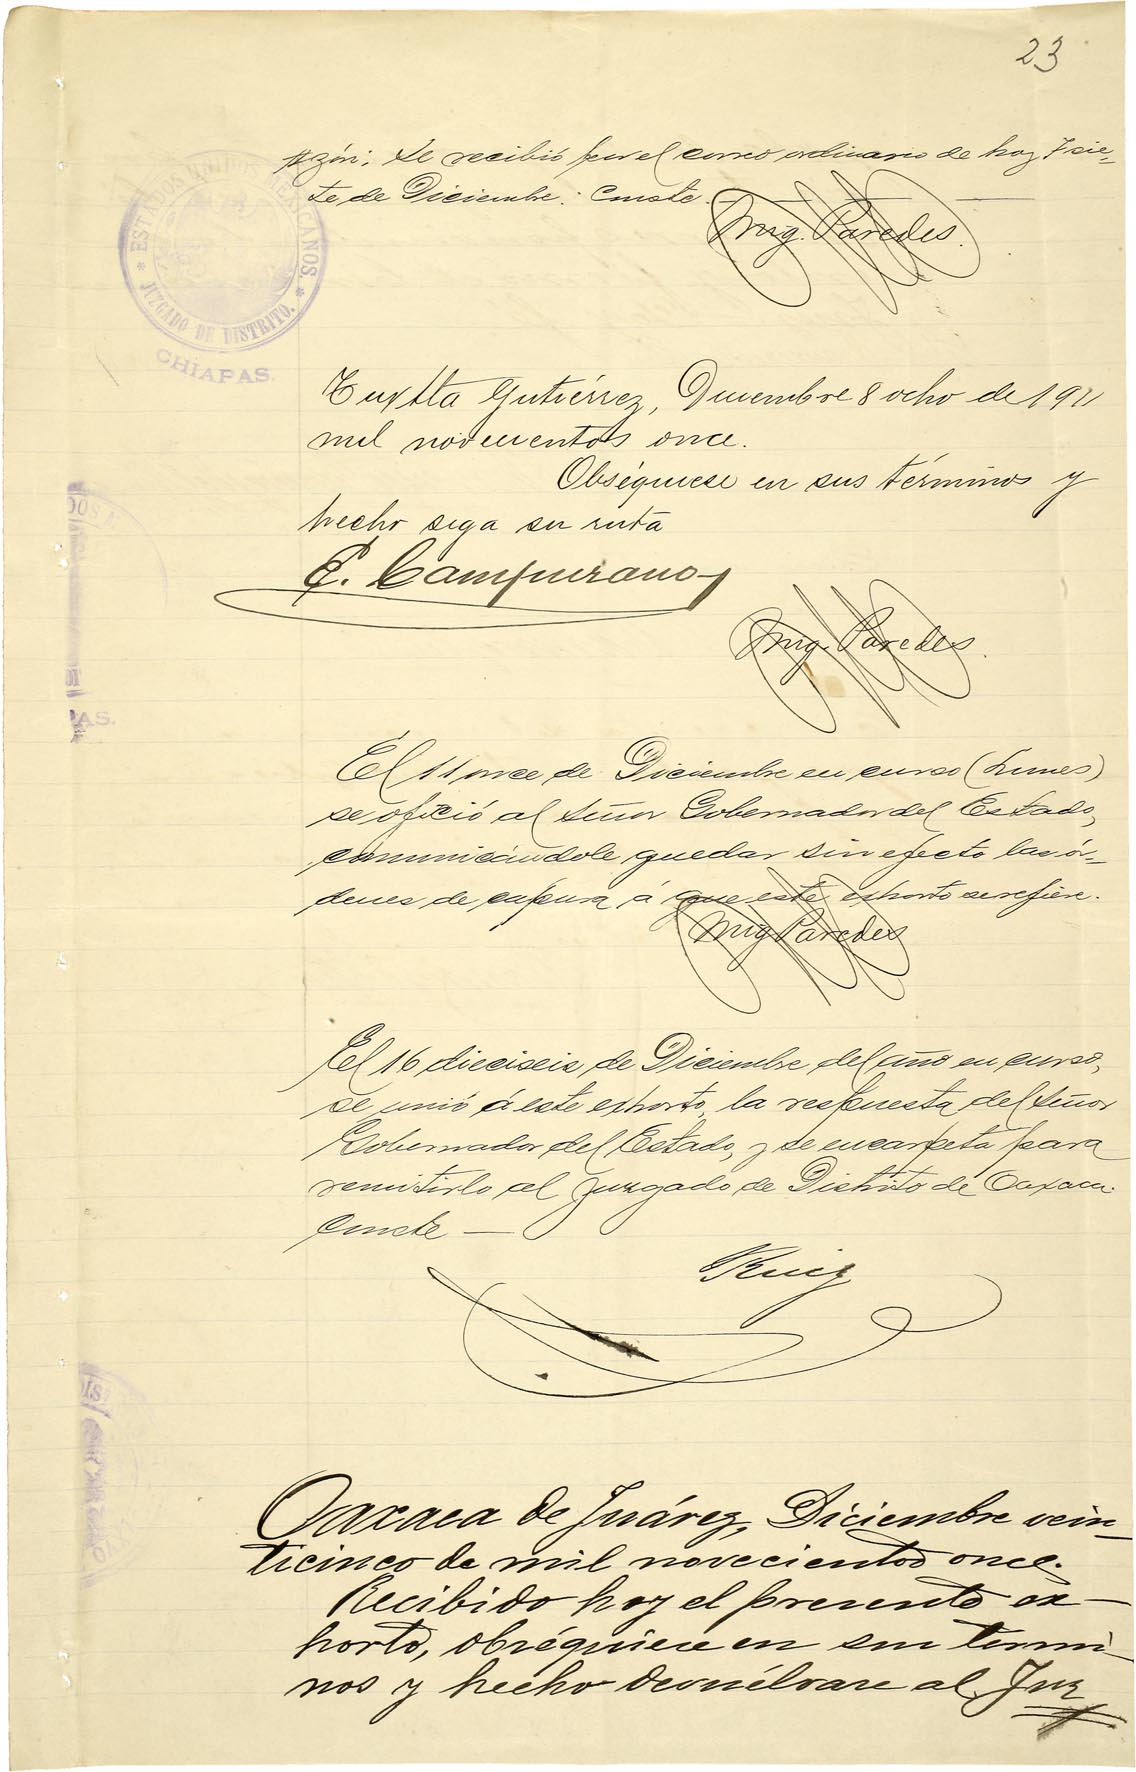 23
se recibió por el correo ordinario de hoy 7 sie-
te de Diciembre. Conste.
Mig. Paredes.
ESTADOS UNIDOS MEXICANOS.
* JUZGADO DE DISTRITO. *
CHIAPAS.
Tuxtla Gutiérrez, Diciembre 8 ocho de 1911
mil novecientos once.
Obséquiese en sus términos y
hecho siga su ruta
DOS
C. Campuzano
Mig. Paredes.
AS.
El 11 once de Diciembre en curso (Lunes)
se ofició al señor Gobernador del Estado,
comunicándole quedar sin efecto las ór-
denes de captura á que este exhorto se refiere.
Mig Paredes
El 16 dieciseis de Diciembre del año en curso,
se unió á este exhorto, la respuesta del señor
Gobernador del Estado, y se encarpeta para
remitirlo al Juzgado de Distrito de Oaxaca.
Conste —
Ruiz
Oaxaca de Juárez, Diciembre vein-
ticinco de mil novecientos once.
Recibido hoy el presente ex-
horto, obséquiese en sus térmi-
nos y hecho devuélvase al Juz